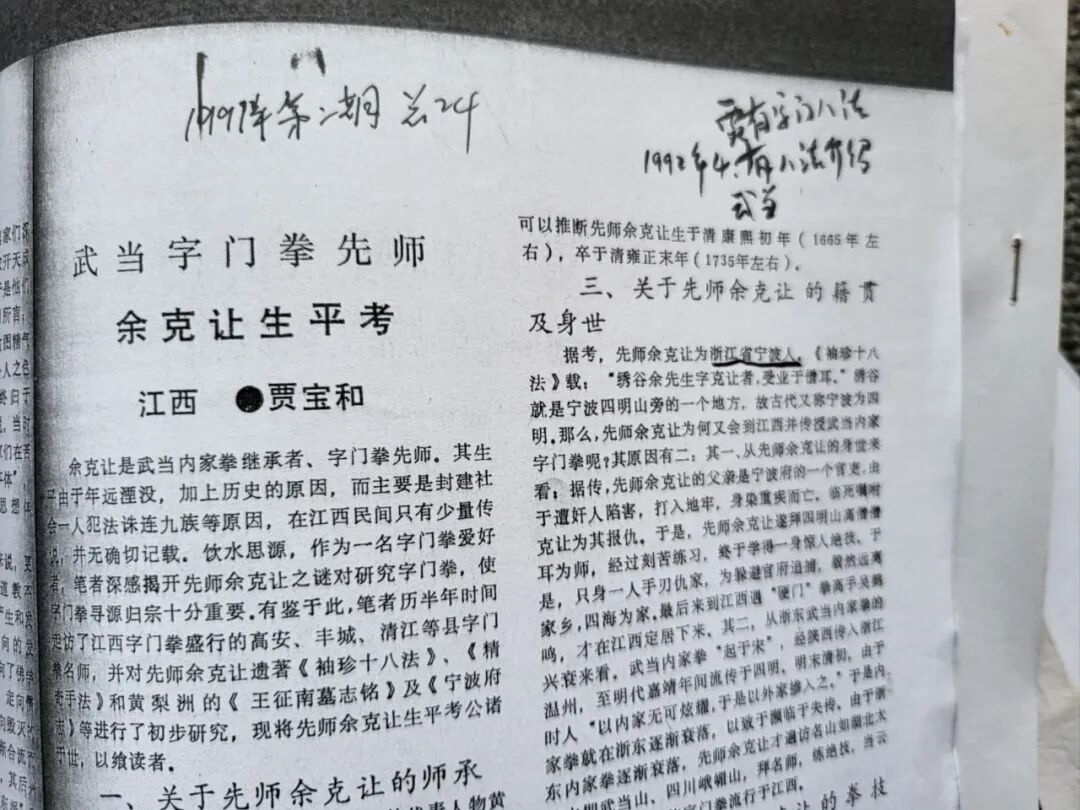 1991年第二期 总24
贾有字门八法
1992年4.有八法介绍
武当
武当字门拳先师
余克让生平考
江西 ●贾宝和
余克让是武当内家拳继承者、字门拳先师。其生
平由于年远湮没，加上历史的原因，而主要是封建社
会一人犯法诛连九族等原因，在江西民间只有少量传
说，并无确切记载。饮水思源，作为一名字门拳爱好
者，笔者深感揭开先师余克让之谜对研究字门拳，使
字门拳寻源归宗十分重要。有鉴于此，笔者历半年时间
走访了江西字门拳盛行的高安、丰城、清江等县字门
拳名师，并对先师余克让遗著《袖珍十八法》、《精
奇手法》和黄梨洲的《王征南墓志铭》及《宁波府
志》等进行了初步研究，现将先师余克让生平考公诸
于世，以飨读者。
一、关于先师余克让的师承
可以推断先师余克让生于清康熙初年（1665年左
右），卒于清雍正末年（1735年左右）。
三、关于先师余克让的籍贯
及身世
据考，先师余克让为浙江省宁波人，《袖珍十八
法》载：“绣谷余先生字克让者，受业于僧耳。”绣谷
就是宁波四明山旁的一个地方，故古代又称宁波为四
明。那么，先师余克让为何又会到江西并传授武当内家
字门拳呢？其原因有二：其一、从先师余克让的身世来
看；据传，先师余克让的父亲是宁波府的一个官吏，由
于遭奸人陷害，打入地牢，身染重疾而亡。临死嘱咐
克让为其报仇。于是，先师余克让遂拜四明山高僧僧
耳为师，经过刻苦练习，终于学得一身惊人绝技。于
是，只身一人手刃仇家，为躲避官府追捕，毅然远离
家乡，四海为家。最后来到江西遇“硬门”拳高手吴鹤
鸣，才在江西定居下来。其二，从浙东武当内家拳的
兴衰来看，武当内家拳“起于宋”，经陕西传入浙江
温州，至明代嘉靖年间流传于四明，明末清初，由于
时人“以内家无可炫耀，于是以外家掺入之。”于是内
家拳就在浙东逐渐衰落，以致于濒临于失传。由于浙
东内家拳逐渐衰落，先师余克让才遍访名山如湖北太
武当山、四川峨嵋山，拜名师，练绝技，当云
字门拳流行于江西。